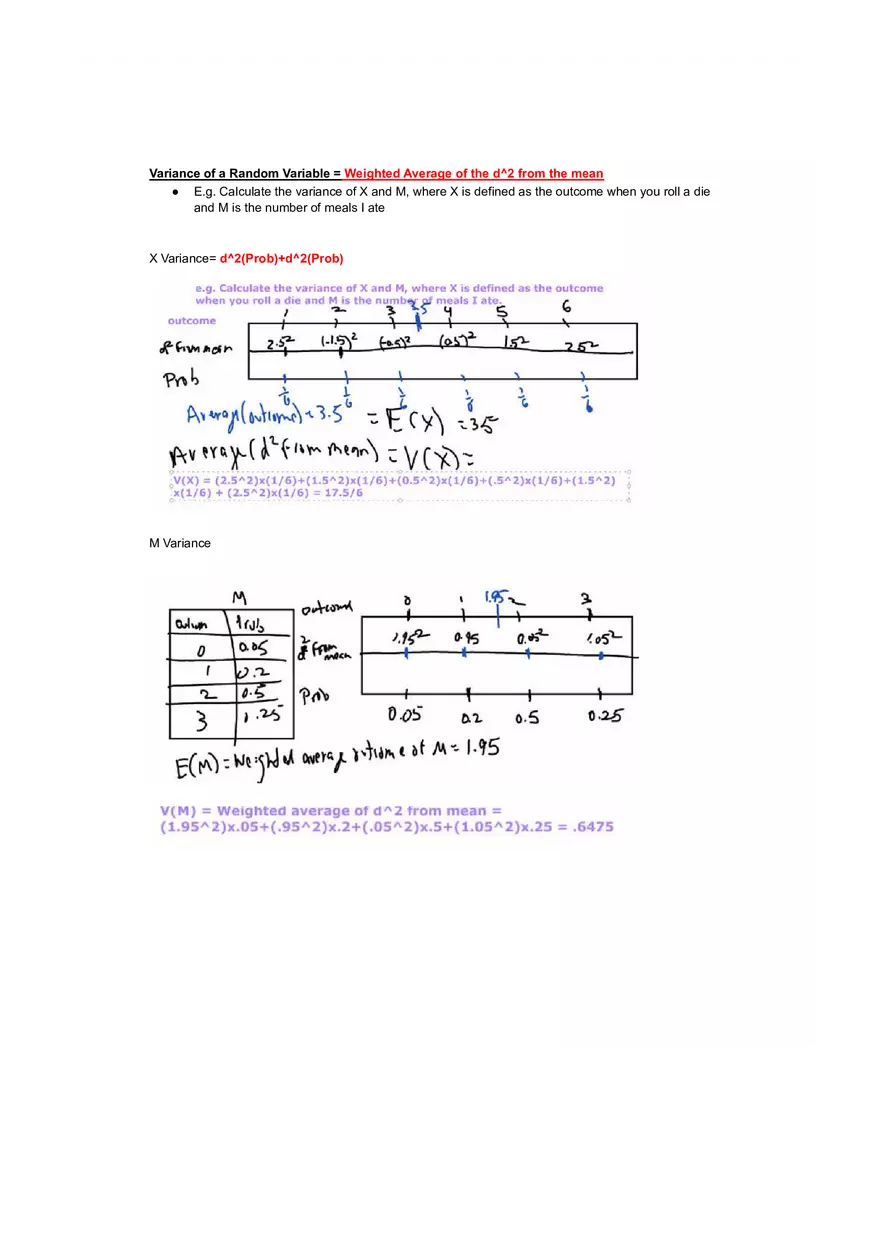 Variance of a Random Variable = Weighted Average of the d^2 from the mean
● E.g. Calculate the variance of X and M, where X is defined as the outcome when you roll a die
and M is the number of meals I ate
X Variance= d^2(Prob)+d^2(Prob)
e.g. Calculate the variance of X and M, where X is defined as the outcome
when you roll a die and M is the number of meals I ate.
1 2 3 3.5 4 5 6
outcome
d² from mean 2.5² (-1.5)² (-0.5)² (0.5)² 1.5² 2.5²
Prob
1/6 1/6 1/6 1/6 1/6 1/6
Average(outcome) = 3.5 = E(X) = 3.5
Average(d² from mean) = V(X) =
V(X) = (2.5^2)x(1/6)+(1.5^2)x(1/6)+(0.5^2)x(1/6)+(.5^2)x(1/6)+(1.5^2)
x(1/6) + (2.5^2)x(1/6) = 17.5/6
M Variance
M
Prob
0 0.05
1 0.2
2 0.5
3 .25
outcome 0 1 1.95 2 3
d² from mean 1.95² 0.95 0.05² 1.05²
Prob
0.05 0.2 0.5 0.25
E(M) = Weighted average outcome of M = 1.95
V(M) = Weighted average of d^2 from mean =
(1.95^2)x.05+(.95^2)x.2+(.05^2)x.5+(1.05^2)x.25 = .6475